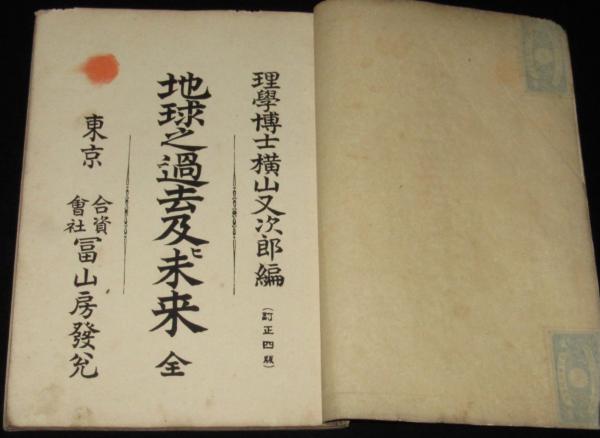 理學博士橫山又次郎編
(訂正四版)
地球之過去及ヒ未来 全
東京 合資會社 冨山房發兌